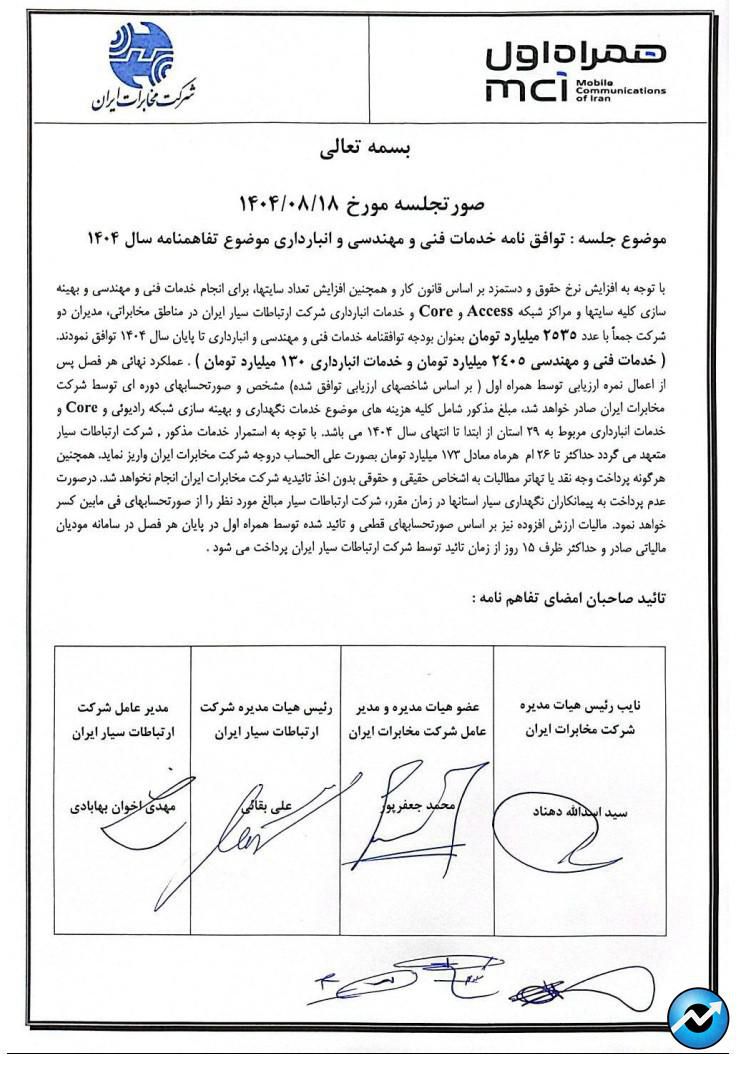 شرکت مخابرات ایران
همراه اول
mci Mobile
Communications
of Iran
بسمه تعالی
صورتجلسه مورخ ۱۴۰۴/۰۸/۱۸
موضوع جلسه : توافق نامه خدمات فنی و مهندسی و انبارداری موضوع تفاهمنامه سال ۱۴۰۴
با توجه به افزایش نرخ حقوق و دستمزد بر اساس قانون کار و همچنین افزایش تعداد سایتها، برای انجام خدمات فنی و مهندسی و بهینه
سازی کلیه سایتها و مراکز شبکه Access و Core و خدمات انبارداری شرکت ارتباطات سیار ایران در مناطق مخابراتی، مدیران دو
شرکت جمعاً با عدد ۲۵۳۵ میلیارد تومان بعنوان بودجه توافقنامه خدمات فنی و مهندسی و انبارداری تا پایان سال ۱۴۰۴ توافق نمودند.
( خدمات فنی و مهندسی ۲۴۰۵ میلیارد تومان و خدمات انبارداری ۱۳۰ میلیارد تومان ) . عملکرد نهائی هر فصل پس
از اعمال نمره ارزیابی توسط همراه اول ( بر اساس شاخصهای ارزیابی توافق شده) مشخص و صورتحسابهای دوره ای توسط شرکت
مخابرات ایران صادر خواهد شد، مبلغ مذکور شامل کلیه هزینه های موضوع خدمات نگهداری و بهینه سازی شبکه رادیوئی و Core و
خدمات انبارداری مربوط به ۲۹ استان از ابتدا تا انتهای سال ۱۴۰۴ می باشد. با توجه به استمرار خدمات مذکور , شرکت ارتباطات سیار
متعهد می گردد حداکثر تا ۲۶ ام هرماه معادل ۱۷۳ میلیارد تومان بصورت علی الحساب دروجه شرکت مخابرات ایران واریز نماید. همچنین
هرگونه پرداخت وجه نقد یا تهاتر مطالبات به اشخاص حقیقی و حقوقی بدون اخذ تائیدیه شرکت مخابرات ایران انجام نخواهد شد. درصورت
عدم پرداخت به پیمانکاران نگهداری سیار استانها در زمان مقرر، شرکت ارتباطات سیار مبالغ مورد نظر را از صورتحسابهای فی مابین کسر
خواهد نمود. مالیات ارزش افزوده نیز بر اساس صورتحسابهای قطعی و تائید شده توسط همراه اول در پایان هر فصل در سامانه مودیان
مالیاتی صادر و حداکثر ظرف ۱۵ روز از زمان تائید توسط شرکت ارتباطات سیار ایران پرداخت می شود .
تائید صاحبان امضای تفاهم نامه :
نایب رئیس هیات مدیره
شرکت مخابرات ایران
سید اسدالله دهناد
عضو هیات مدیره و مدیر
عامل شرکت مخابرات ایران
محمد جعفرپور
رئیس هیات مدیره شرکت
ارتباطات سیار ایران
علی بقائی
مدیر عامل شرکت
ارتباطات سیار ایران
مهدی اخوان بهابادی